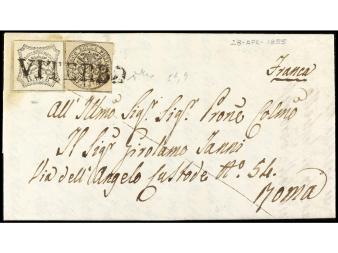 28-APR-1855
VITERBO
Franca
All' Illmo Sigr. Sigr. Prone Colmo
Il Sigr Girolamo Janni
Via dell' Angelo Custode No. 54.
Roma